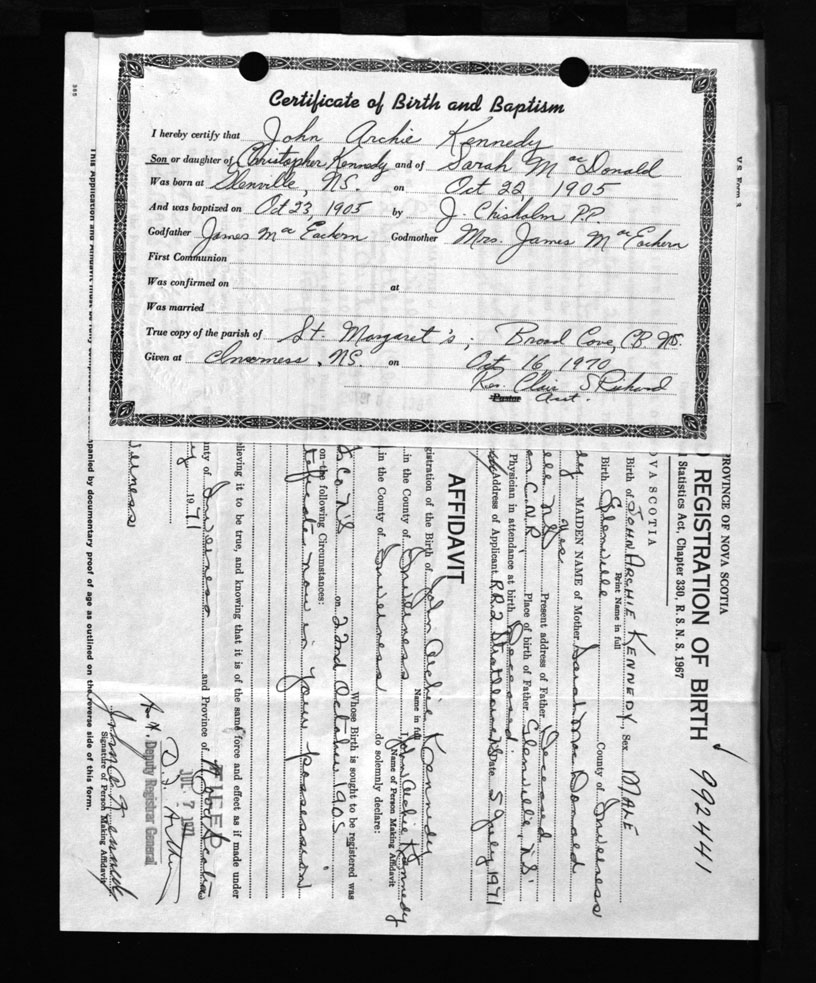 Certificate of Birth and Baptism
I hereby certify that John Archie Kennedy
Son or daughter of Christopher Kennedy and of Sarah MacDonald
Was born at Glenville, NS. on Oct 22 1905
And was baptized on Oct 23, 1905 by J. Chisholm P.P.
Godfather James MacEachern Godmother Mrs. James MacEachern
First Communion
Was confirmed on at
Was married
True copy of the parish of St. Margaret's; Broad Cove, CB. NS.
Given at Inverness, NS. on Oct 16, 1970
Rev. Clair S. Richard
Pastor Asst.
V.S. Form 3
PROVINCE OF NOVA SCOTIA
REGISTRATION OF BIRTH 992441
Statistics Act, Chapter 330, R. S. N. S. 1967
OVA SCOTIA
Birth of JOHN ARCHIE KENNEDY, Sex MALE
Print Name in full
Birth Glenville County of Inverness
MAIDEN NAME of Mother Sarah MacDonald
Present address of Father Deceased
C.N.R. Place of birth of Father Glenville, N.S.
Physician in attendance at birth Deceased.
Address of Applicant R.R.2 Date 5 July 1971
AFFIDAVIT
gistration of the Birth of John Archie Kennedy
Name in full
in the County of Inverness I, John Archie Kennedy
Name of Person Making Affidavit
in the County of Inverness do solemnly declare:
Whose Birth is sought to be registered was
on 22nd October 1905
on the following Circumstances:
now in your possession
elieving it to be true, and knowing that it is of the same force and effect as if made under
nty of Inverness and Province of Nova Scotia
19 71
JUL 7 1971
Deputy Registrar General
John A Kennedy
Signature of Person Making Affidavit
panied by documentary proof of age as outlined on the reverse side of this form.